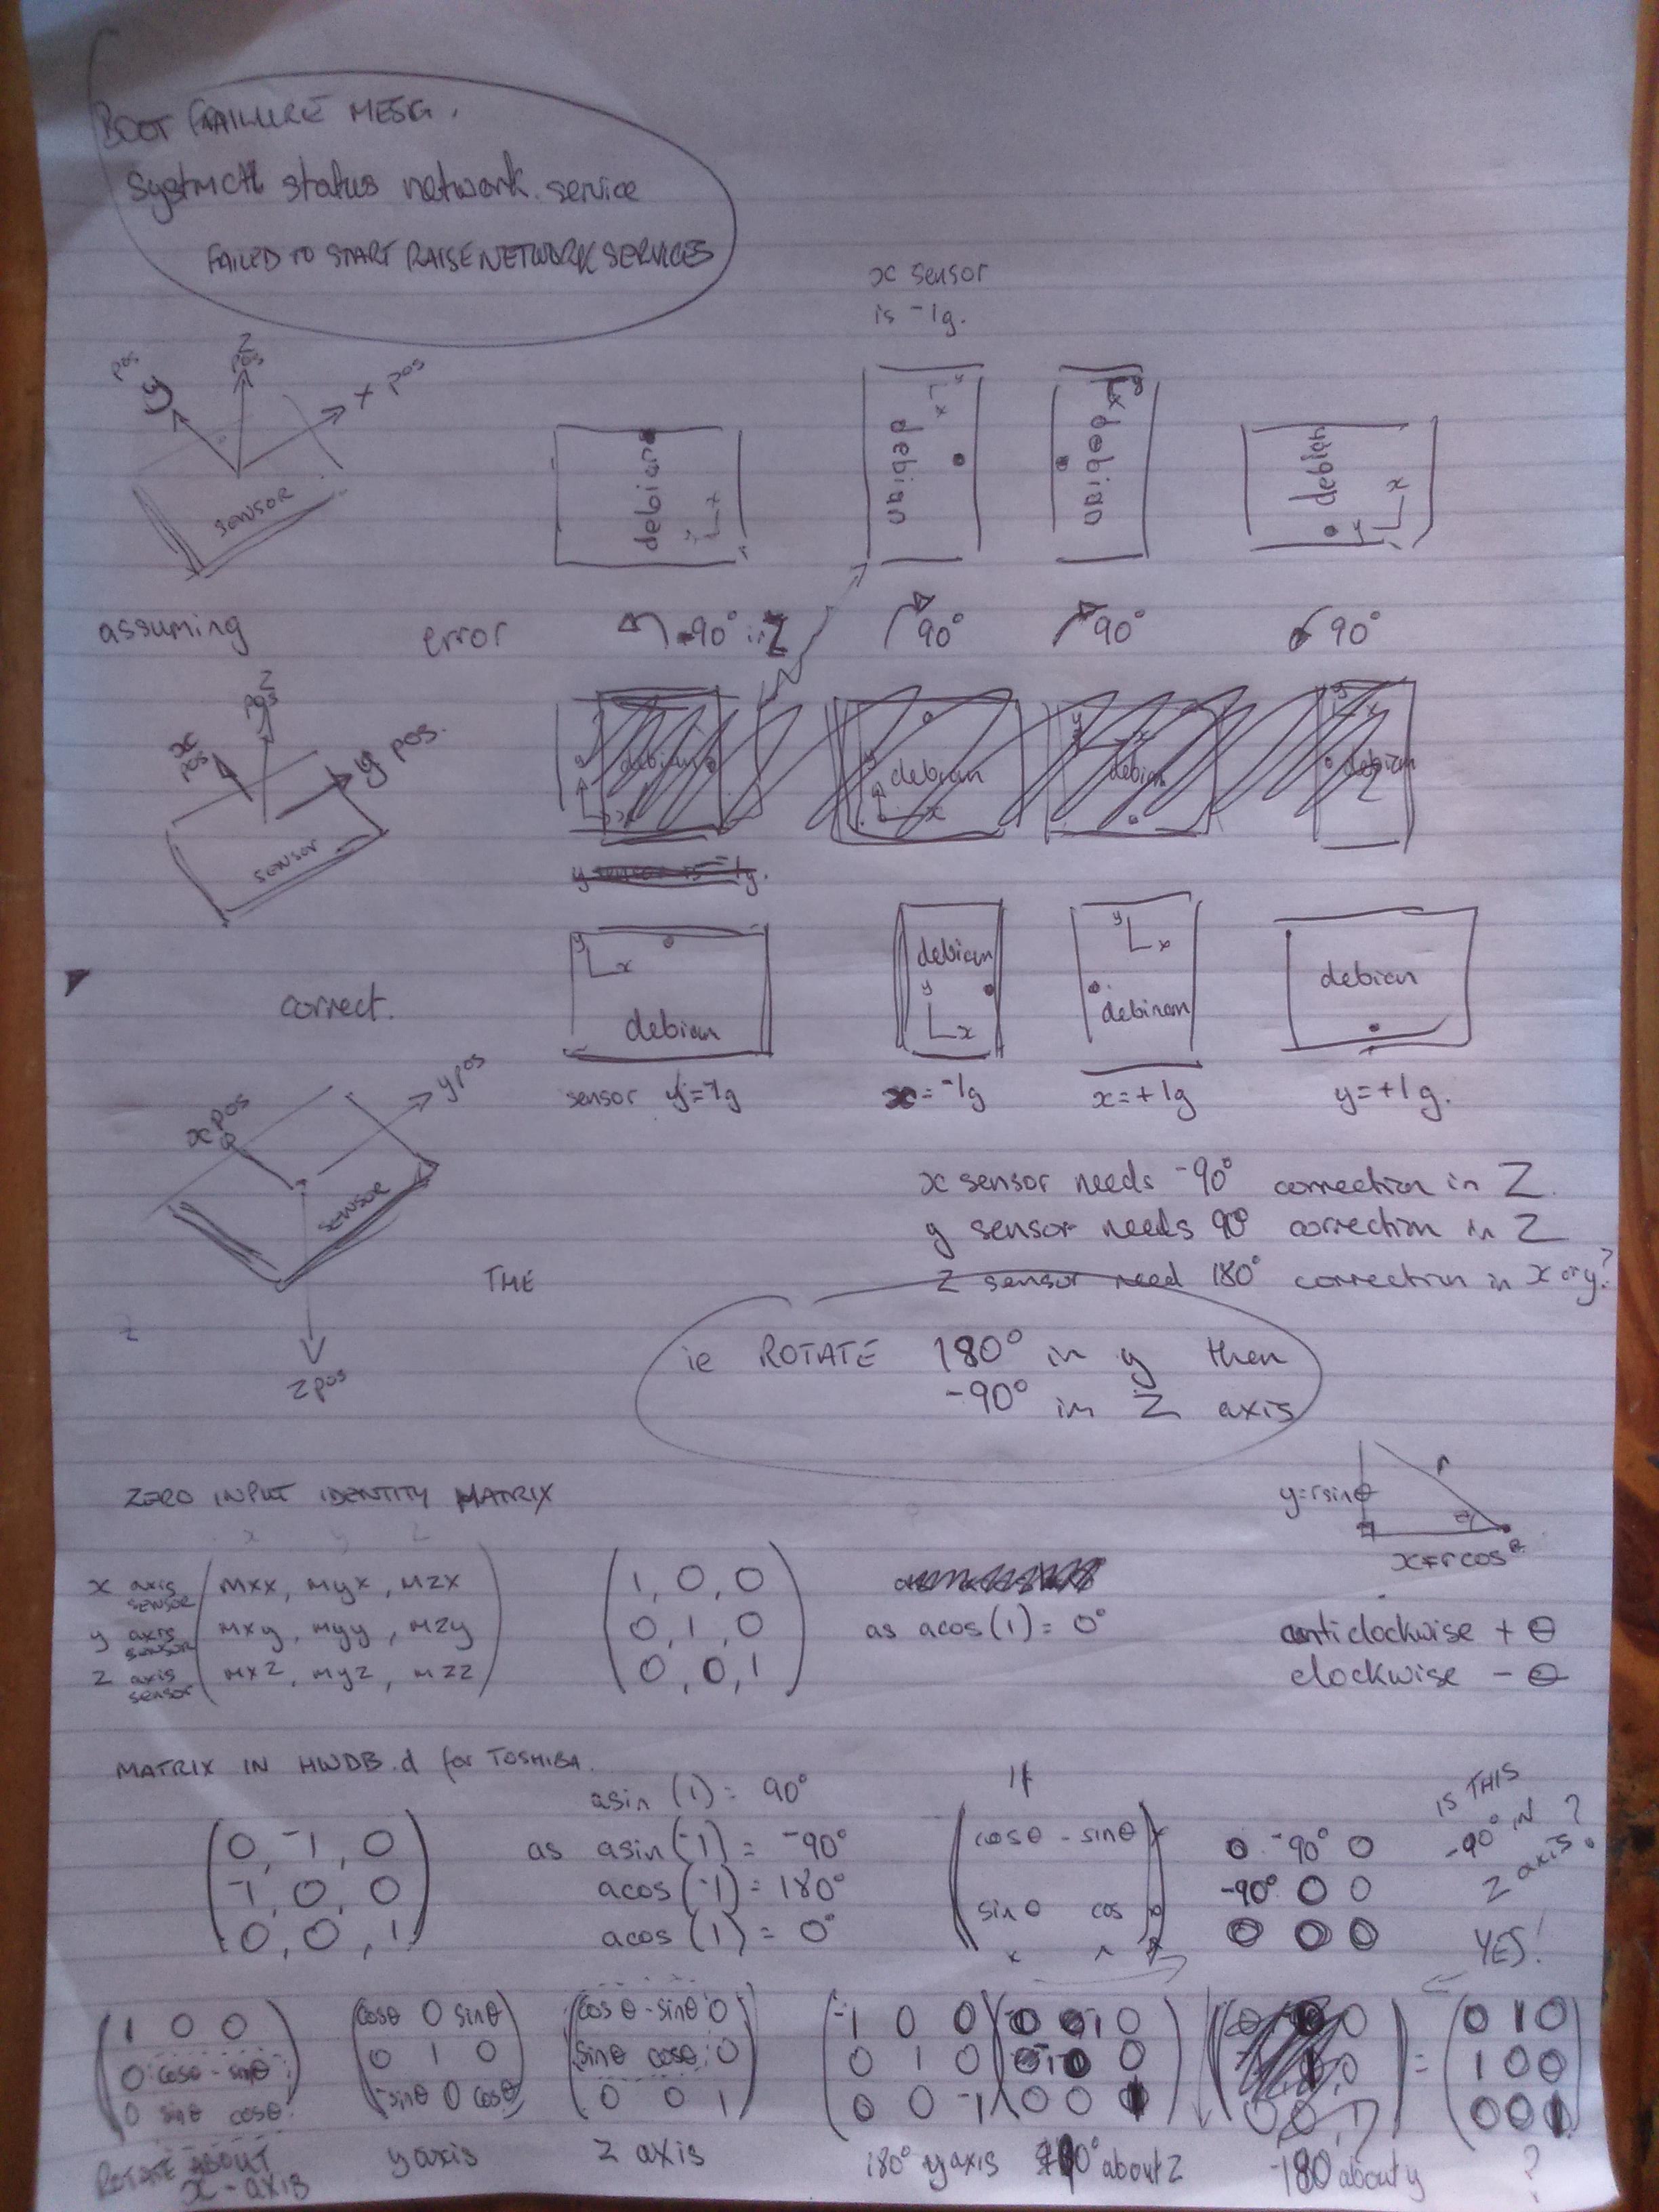 BOOT FAAILURE MESG.
Systmctl status network.service
FAILED TO START RAISE NETWORK SERVICES
x sensor
is -1g.
pos
y
Z
pos
x pos
sensor
debian
x
y
x
debian
y
x
debian
debian
y
x
assuming
error
-90° in Z
90°
90°
90°
Z
pos
x
pos
y pos.
sensor
debian
x
y
debian
x
y
debian
y
debian
correct.
y
x
debian
debian
y
x
y
x
debinam
debian
sensor y=-1g
x=-1g
x=+1g
y=+1g.
x pos
y pos
sensor
z pos
z
THE
x sensor needs -90° correction in Z.
y sensor needs 90° correction in Z
Z sensor need 180° correction in x or y?
ie ROTATE 180° in y then
-90° in Z axis
ZERO INPUT IDENTITY MATRIX
y=rsinθ
r
θ
x=rcosθ
x y z
x axis sensor
mxx, myx, mzx
y axis sensor
mxy, myy, mzy
z axis sensor
mxz, myz, mzz
1, 0, 0
0, 1, 0
0, 0, 1
as acos(1) = 0°
anticlockwise + θ
clockwise - θ
MATRIX IN HWDB.d for TOSHIBA.
0, -1, 0
-1, 0, 0
0, 0, 1
asin (1) = 90°
as asin(-1) = -90°
acos(-1) = 180°
acos(1) = 0°
If
cosθ -sinθ
sinθ cos
0 -90° 0
-90° 0 0
0 0 0
IS THIS
-90° IN
Z axis?
YES!
1 0 0
0 cosθ -sinθ
0 sinθ cosθ
ROTATE ABOUT
x-axis
cosθ 0 sinθ
0 1 0
-sinθ 0 cosθ
y axis
cosθ -sinθ 0
sinθ cosθ 0
0 0 1
z axis
-1 0 0
0 1 0
0 0 -1
180° y axis
about z
-180 about y
=
0 1 0
1 0 0
0 0 1
?